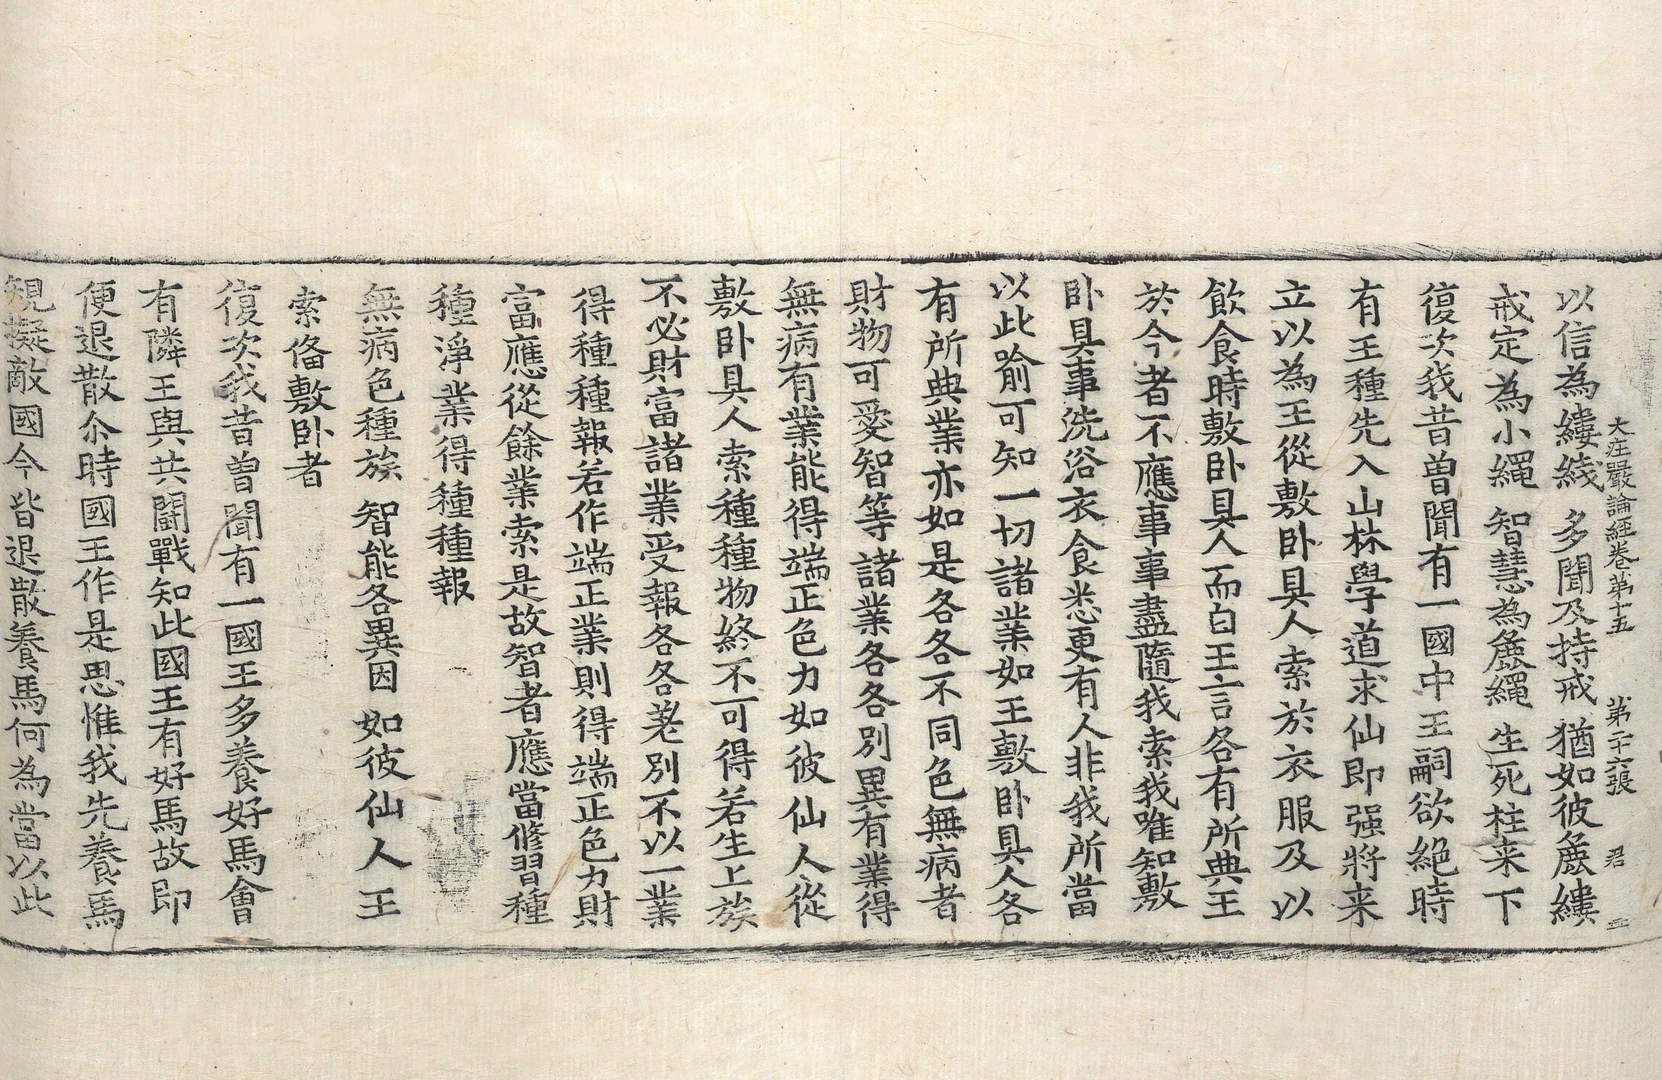 大庄嚴論經卷第十五 第二十六張 君
以信為縷綫 多聞及持戒 猶如彼麁縷
戒定為小繩 智慧為麁繩 生死柱来下
復次我昔曾聞有一國中王嗣欲絕時
有王種先入山林學道求仙即强將来
立以為王從敷卧具人索於衣服及以
飲食時敷卧具人而白王言各有所典王
於今者不應事事盡隨我索我唯知敷
卧具事洗浴衣食悉更有人非我所當
以此喻可知一切諸業如王敷卧具人各
有所典業亦如是各各不同色無病者
財物可愛智等諸業各各別異有業得
無病有業能得端正色力如彼仙人從
敷卧具人索種種物終不可得若生上族
不必財富諸業受報各各差別不以一業
得種種報若作端正業則得端正色力財
富應從餘業索是故智者應當修習種
種淨業得種種報
無病色種族 智能各異因 如彼仙人王
索俻敷卧者
復次我昔曾聞有一國王多養好馬會
有隣王與共鬪戰知此國王有好馬故即
便退散尒時國王作是思惟我先養馬
規擬敵國今皆退散養馬何為當以此